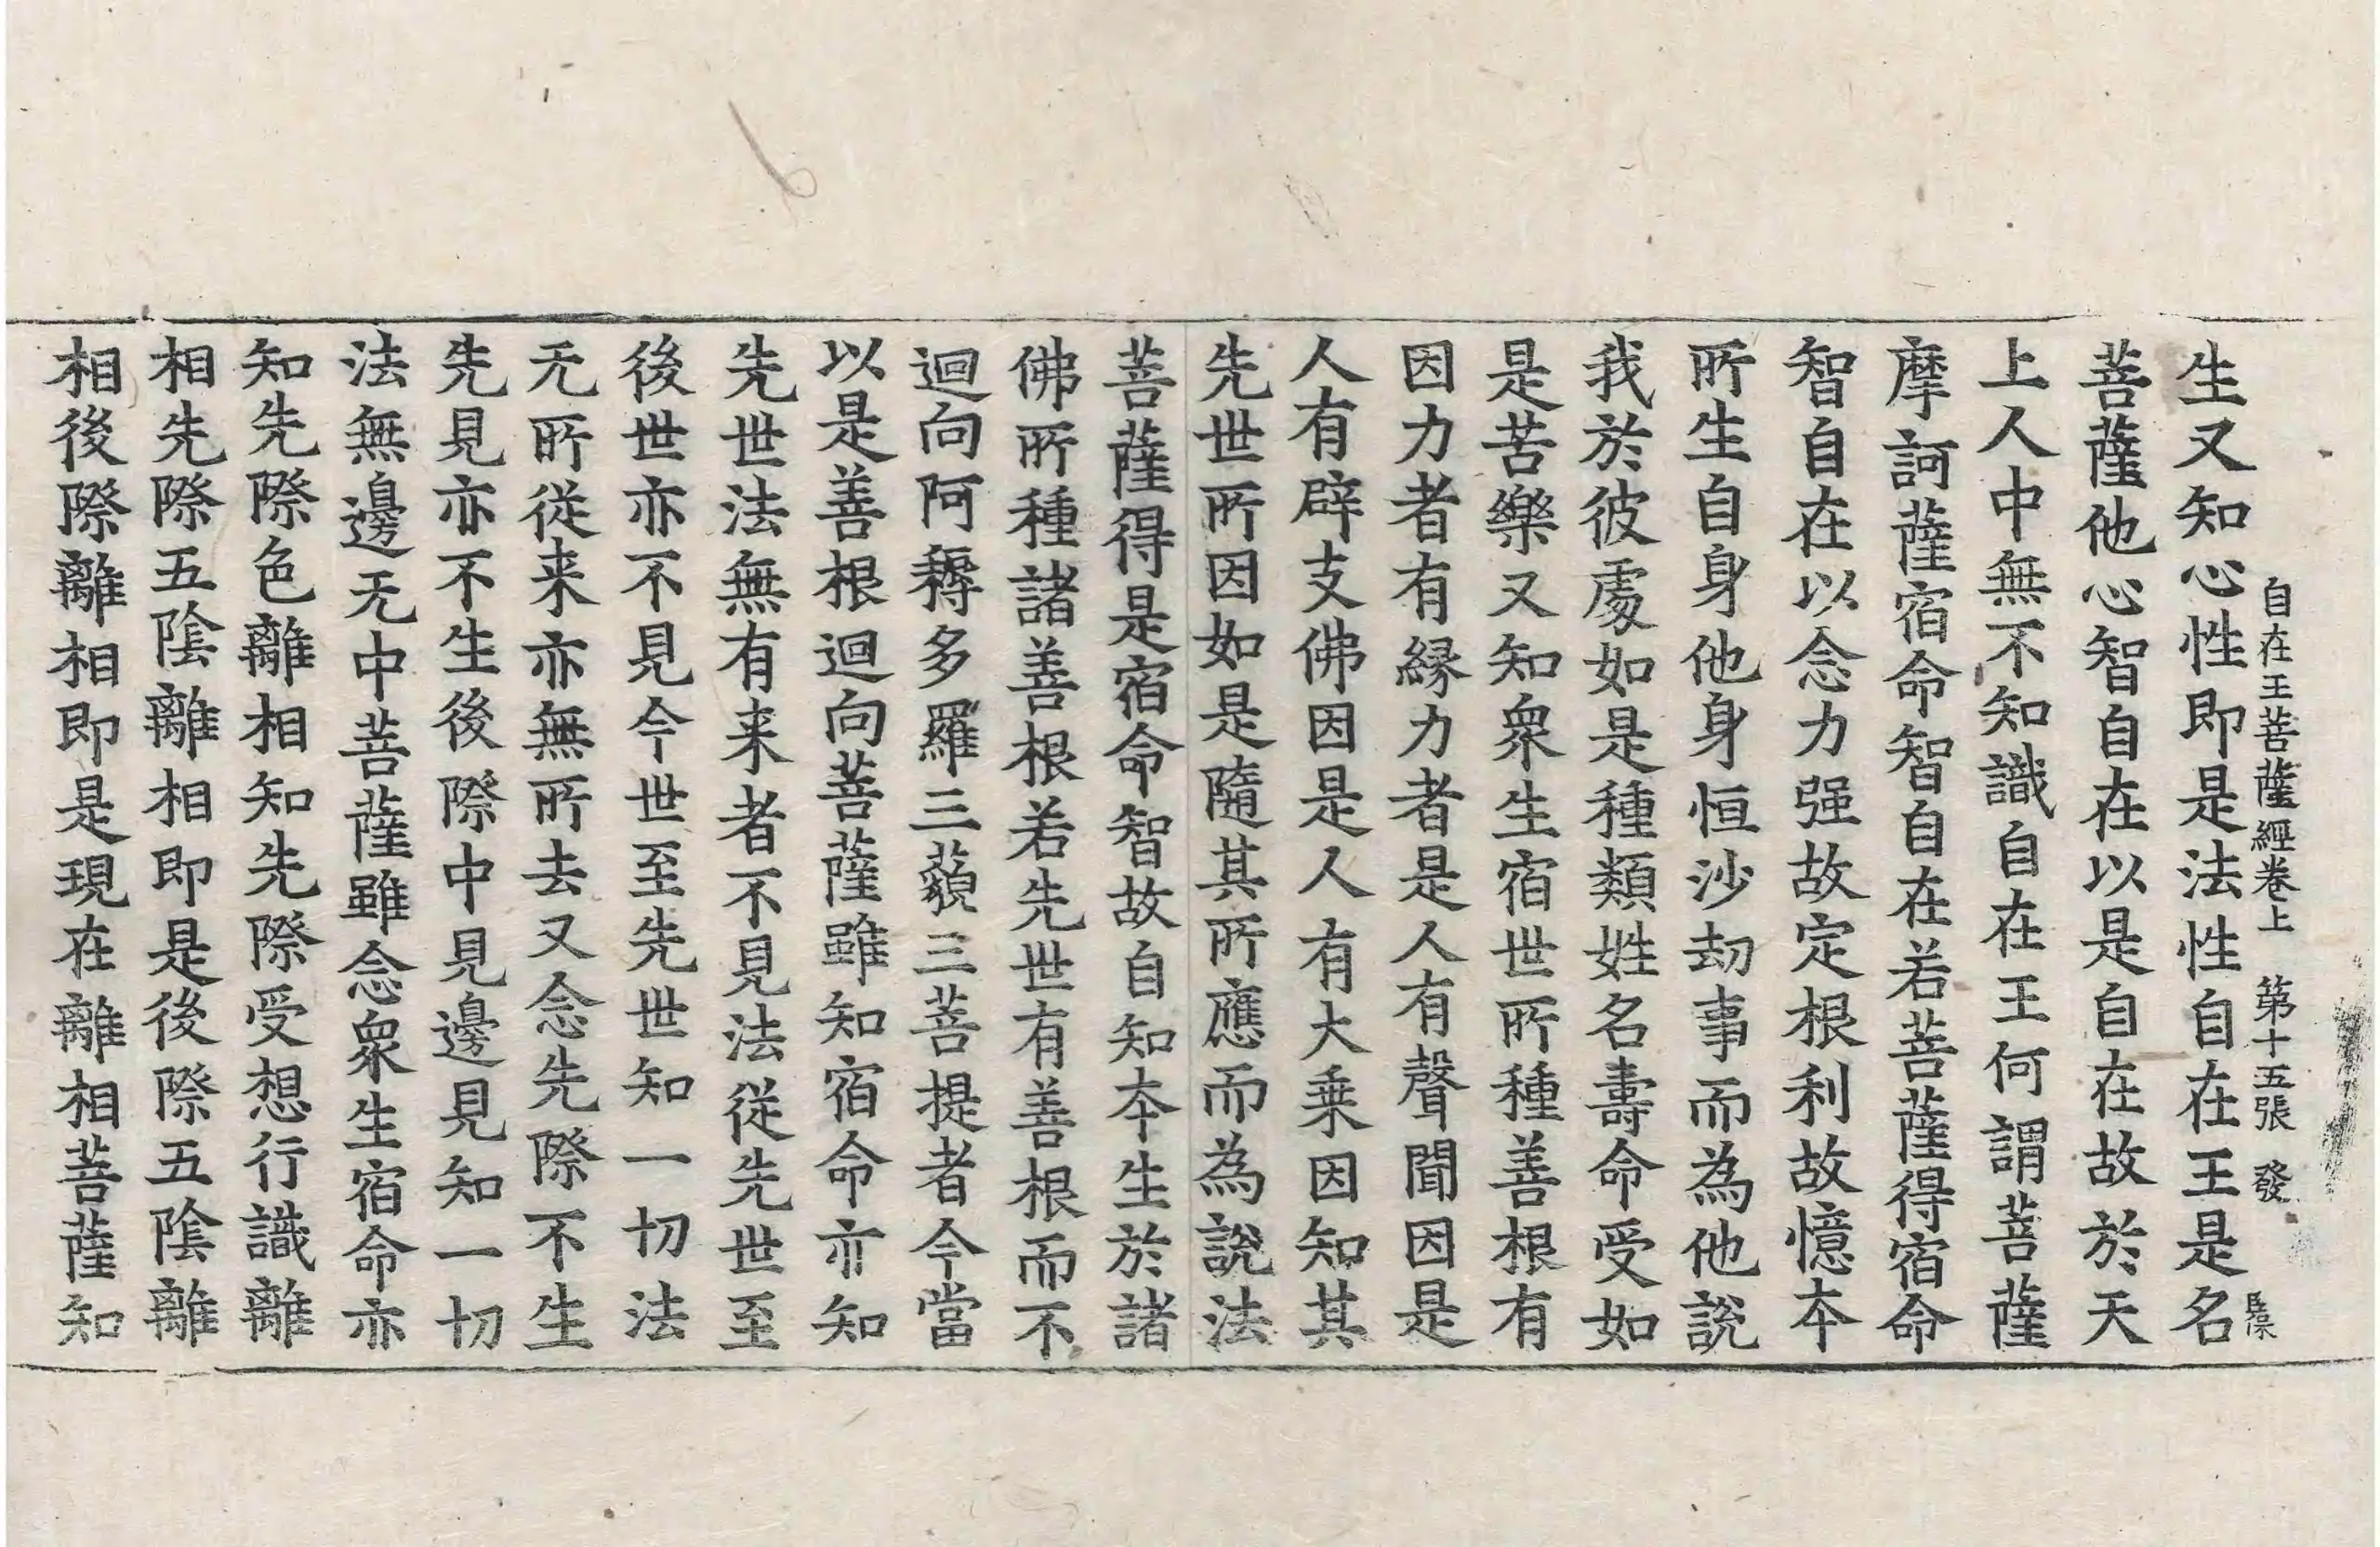 自在王菩薩經卷上　第十五張　發
生又知心性即是法性自在王是名
菩薩他心智自在以是自在故於天
上人中無不知識自在王何謂菩薩
摩訶薩宿命智自在若菩薩得宿命
智自在以念力强故定根利故憶本
所生自身他身恒沙劫事而為他說
我於彼處如是種類姓名壽命受如
是苦樂又知衆生宿世所種善根有
因力者有緣力者是人有聲聞因是
人有辟支佛因是人有大乗因知其
先世所因如是隨其所應而為說法
菩薩得是宿命智故自知本生於諸
佛所種諸善根若先世有善根而不
迴向阿耨多羅三藐三菩提者今當
以是善根迴向菩薩雖知宿命亦知
先世法無有来者不見法從先世至
後世亦不見今世至先世知一切法
无所從来亦無所去又念先際不生
先見亦不生後際中見邊見知一切
法無邊无中菩薩雖念衆生宿命亦
知先際色離相知先際受想行識離
相先際五陰離相即是後際五陰離
相後際離相即是現在離相菩薩知